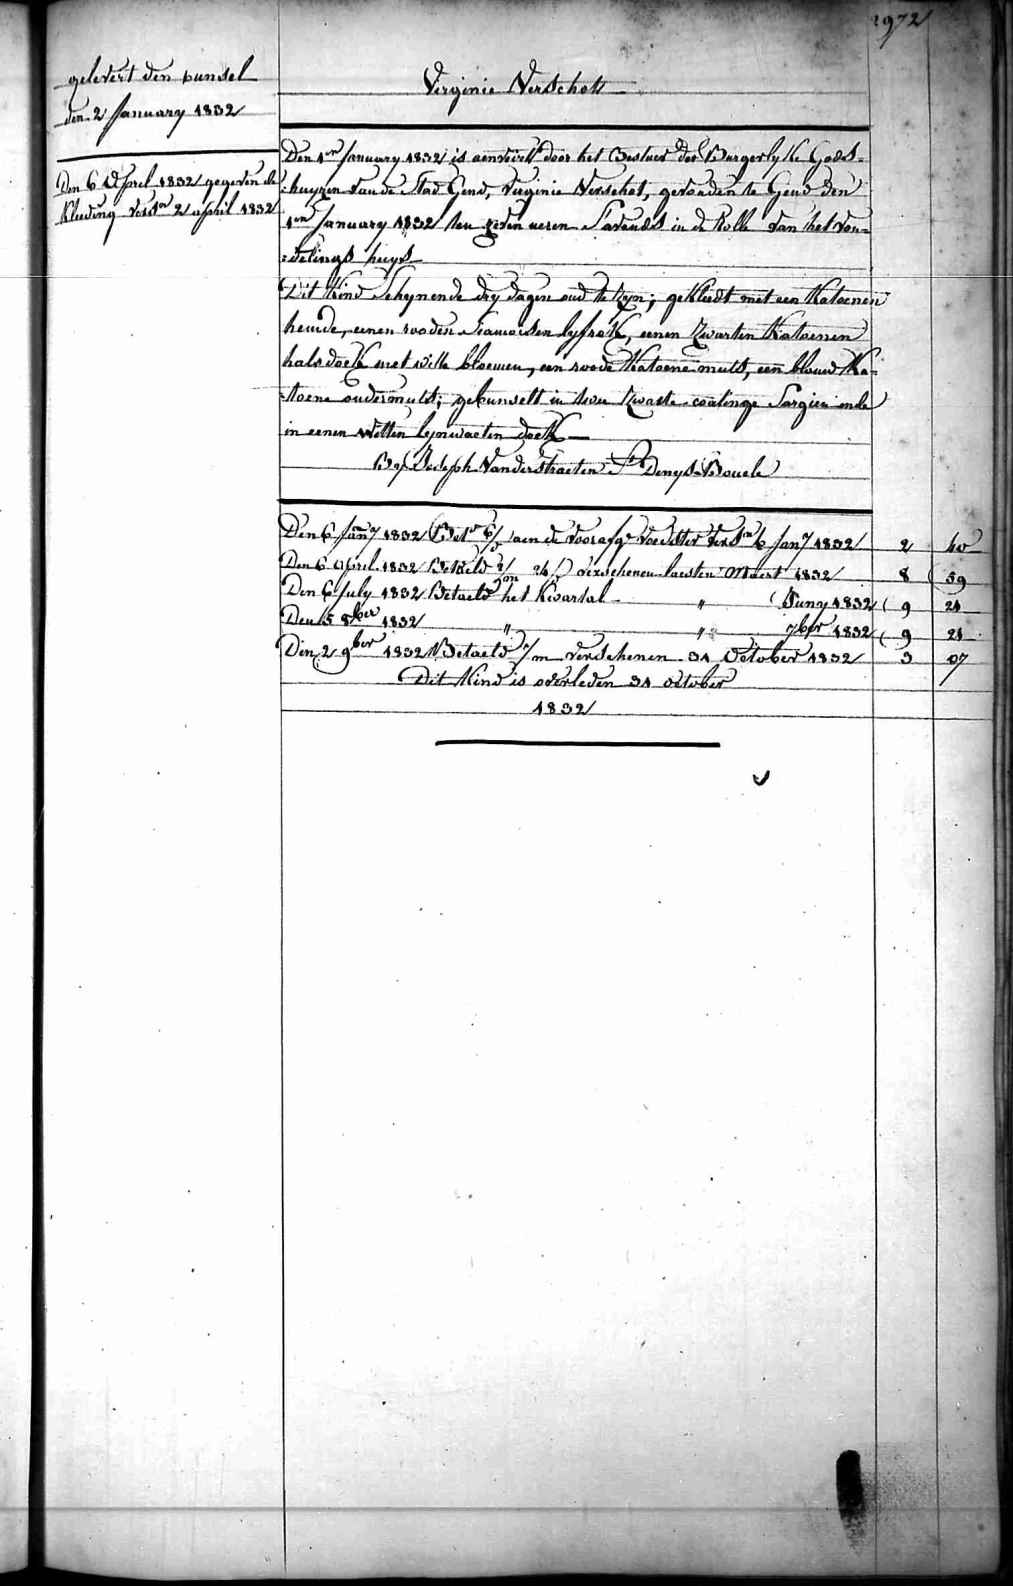 2972
gelevert den bunsel
den 2 January 1832
Den 6 April 1832 gegeven de
Kleeding versn 2 april 1832
Virginie Verschott
Den 1en January 1832 is aenveird door het Bestuer der Burgerlyke Gods-
-huyzen van de Stad Gend, Virginie Verschot, gevonden te Gend den
1en January 1832 ten zeven ueren S'avonds in de Rolle van het von-
-delings huys
Dit Kind Schynende dry dagen oud te zyn; gekleedt met een Katoenen
hemde, eenen rooden Siamoisen lyfrok, eenen zwarten Katoenen
halsdoek met witte bloemen, een roode Katoene muts, een blauw Ka-
-toene ondermuts; gebunselt in twee zwarte Sargien ende
in eenen witten lynwaeten doek
By Joseph Vanderstraeten St Denys-Bouele
Den 6 Jany 1832 Betd 6/ aen de voorafge voedster versn 6 Jany 1832 2 40
Den 6 April 1832 Betaeld 2/m 24/d verschenen laesten Maert 1832 8 59
Den 6 July 1832 Betaeld het Kwartal " Juny 1832 9 21
Den 5 8ber 1832 " " 7ber 1832 9 21
Den 2 9ber 1832 Betaeld 1/m verschenen 31 October 1832 3 07
Dit Kind is overleden 31 october
1832